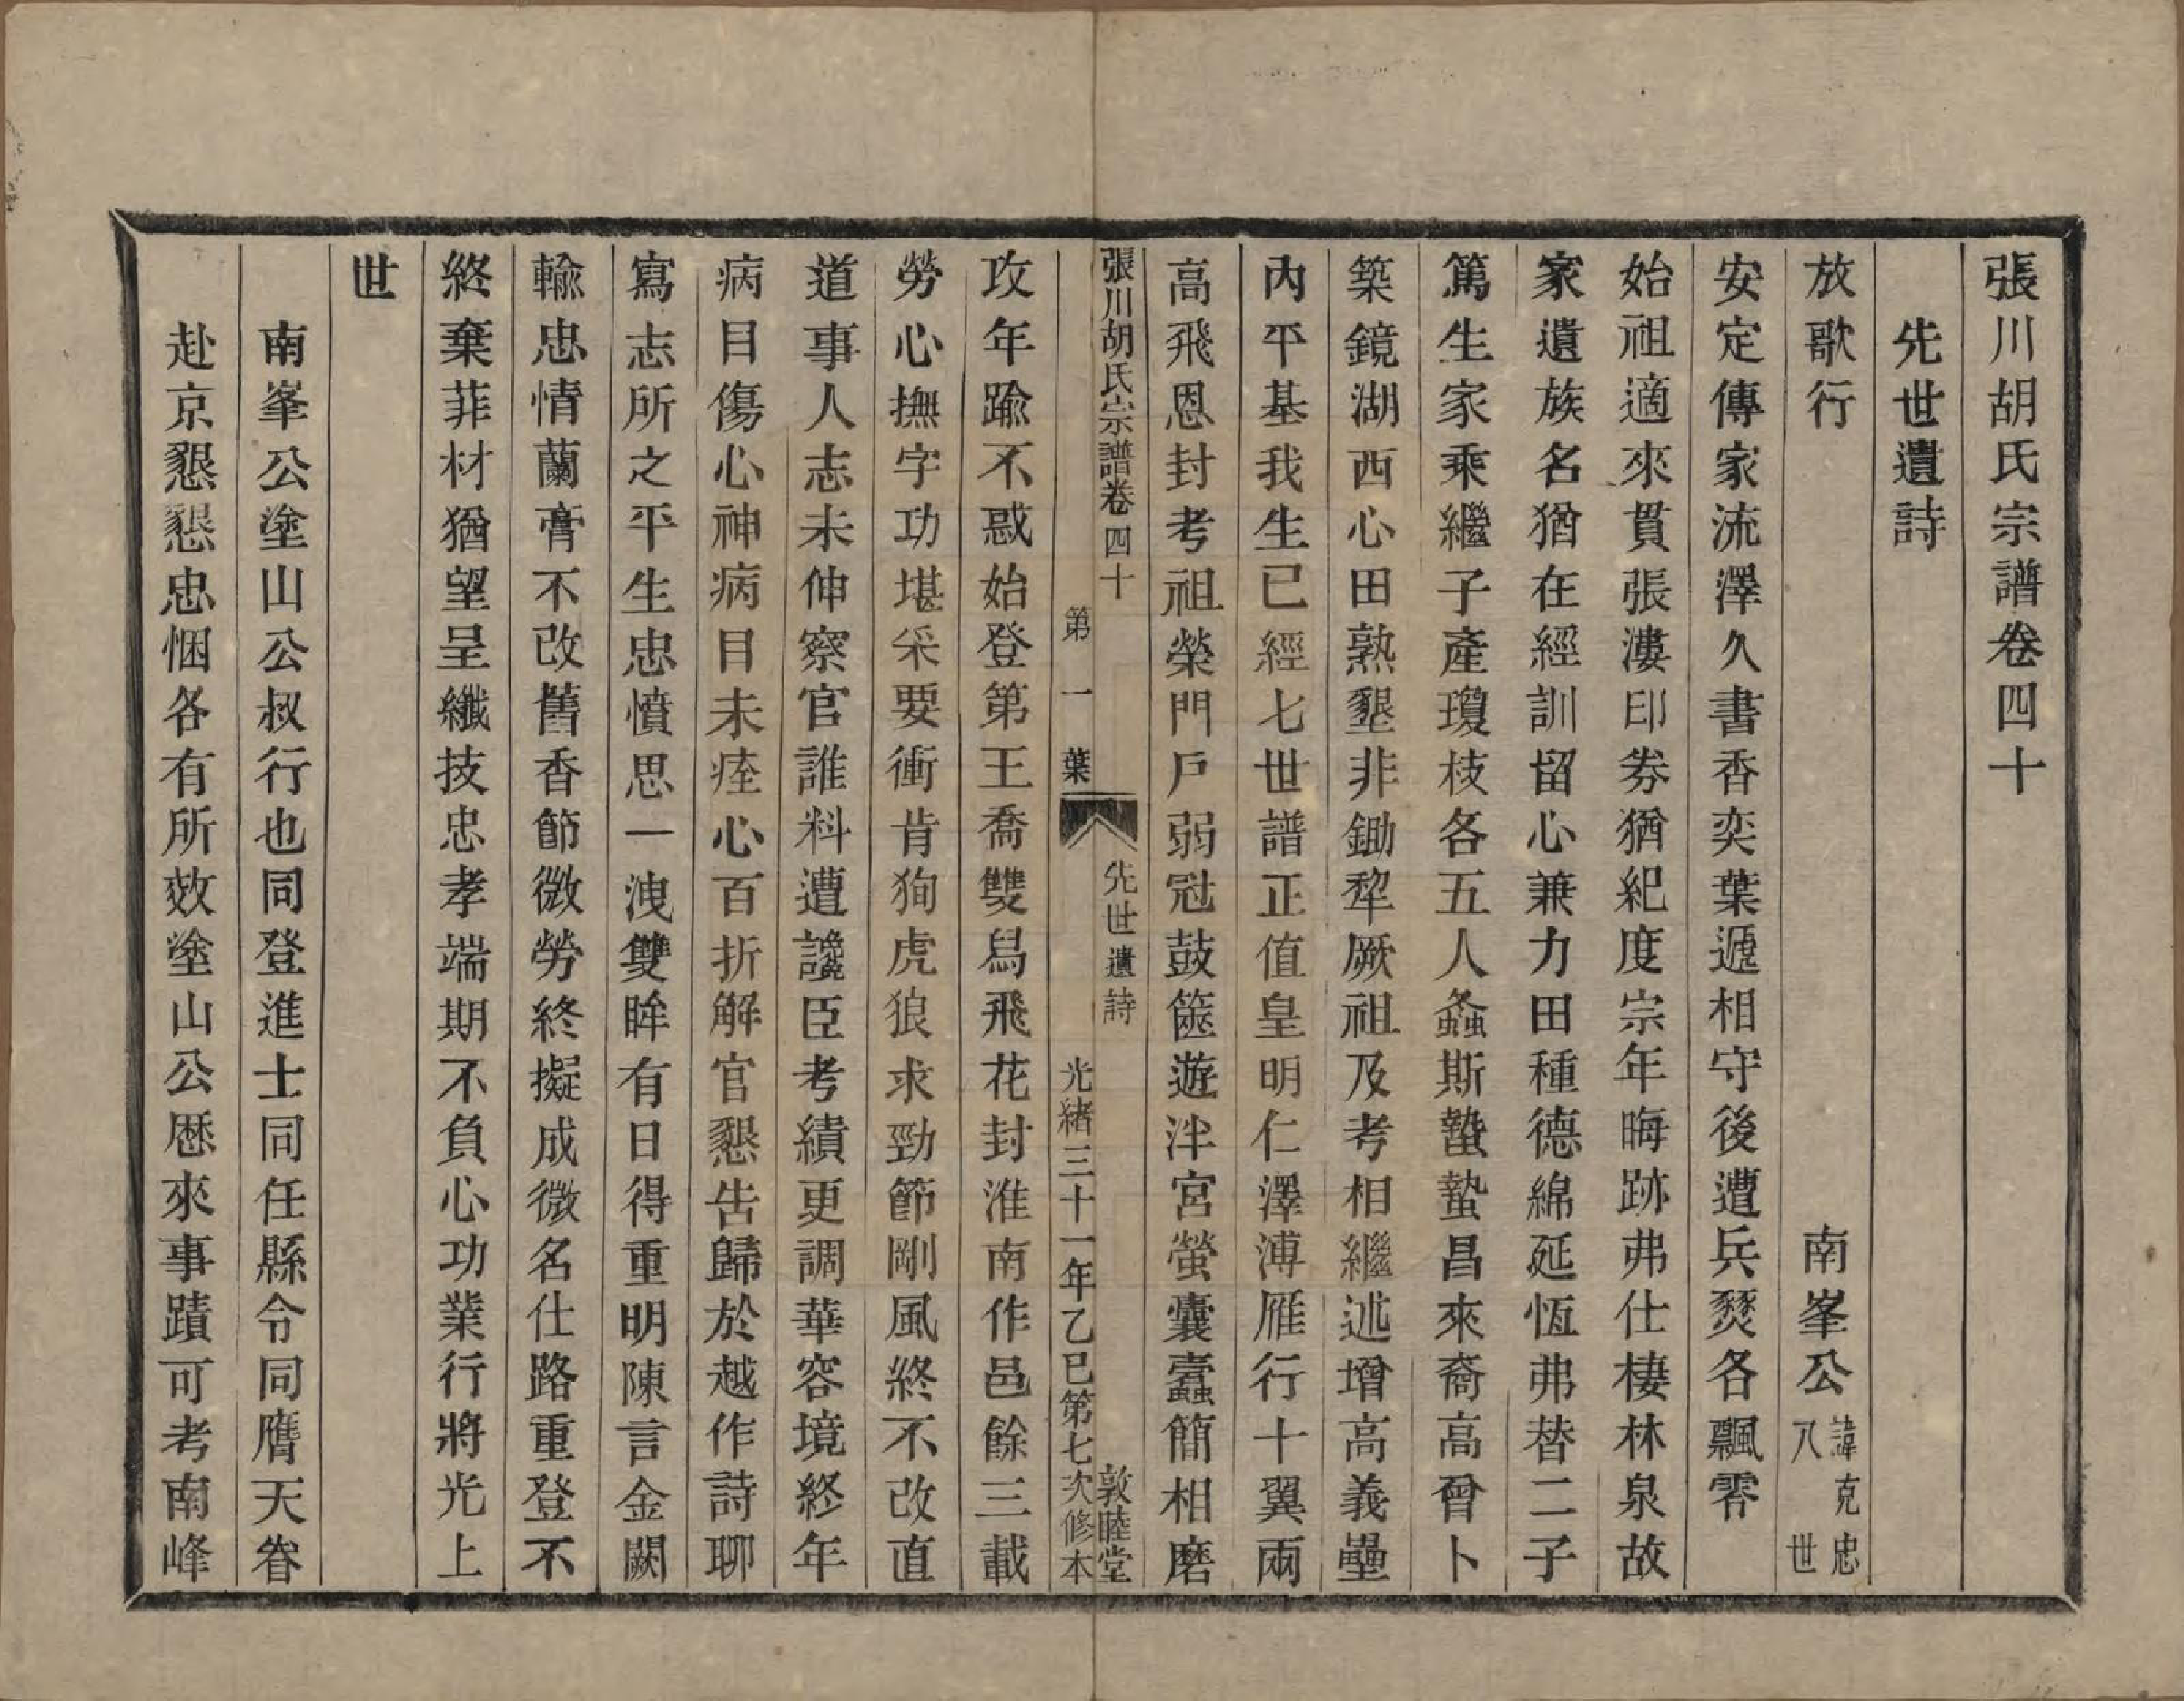 張川胡氏宗譜卷四十
先世遺詩
放歌行　南峯公諱克忠八世
安定傳家流澤久書香奕葉遞相守後遭兵燹各飄零
始祖適來貫張漊印券猶紀度宗年晦跡弗仕棲林泉故
家遺族名猶在經訓留心兼力田種德綿延恆弗替二子
篤生家乘繼子產瓊枝各五人螽斯蟄蟄昌來裔高曾卜
築鏡湖西心田熟墾非鋤犂厥祖及考相繼述增高義壘
內平基我生已經七世譜正值皇明仁澤溥雁行十翼兩
高飛恩封考祖榮門戶弱冠鼓篋遊泮宮螢囊蠹簡相磨
張川胡氏宗譜卷四十　先世遺詩　敦睦堂
第一葉　光緒三十一年乙巳第七次修本
攻年踰不惑始登第王喬雙舄飛花封淮南作邑餘三載
勞心撫字功堪采要衝肯狥虎狼求勁節剛風終不改直
道事人志未伸察官誰料遭讒臣考績更調華容境終年
病目傷心神病目未痊心百折解官懇告歸於越作詩聊
寫志所之平生忠憤思一洩雙眸有日得重明陳言金闕
輸忠情蘭膏不改舊香節微勞終擬成微名仕路重登不
終棄菲材猶望呈纖技忠孝端期不負心功業行將光上
世
南峯公塗山公叔行也同登進士同任縣令同膺天眷
赴京懇懇忠悃各有所效塗山公歷來事蹟可考南峰